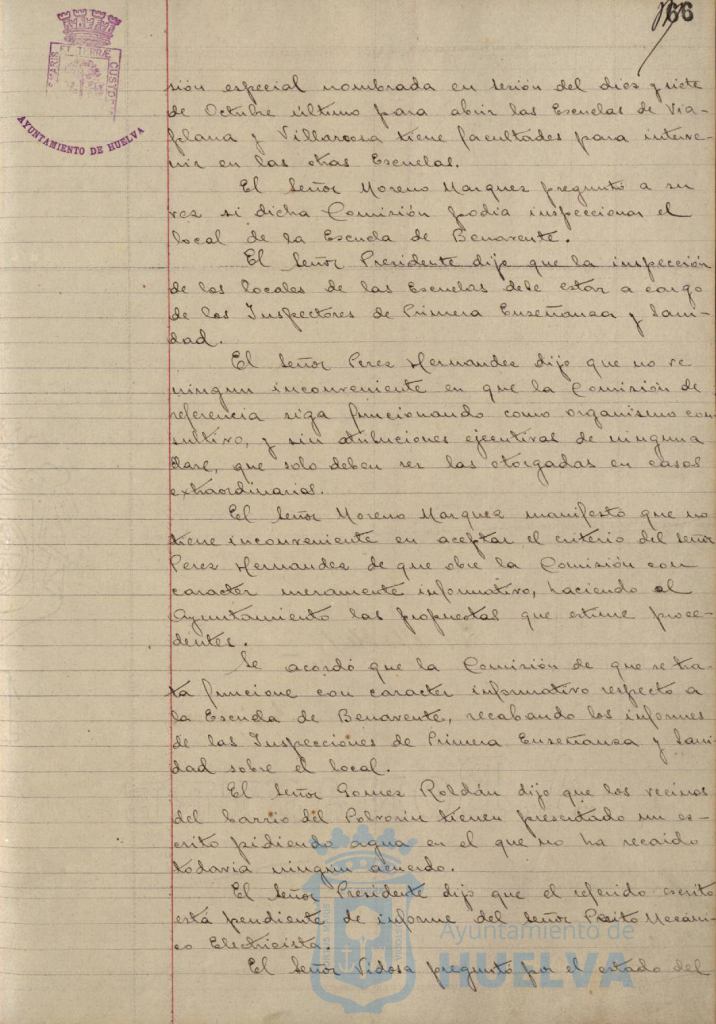 66
PORTUS MARIS ET TERRAE CUSTODIA
AYUNTAMIENTO DE HUELVA
sión especial nombrada en sesión del diez y siete
de Octubre último para abrir las Escuelas de Via-
plana y Villarrosa tiene facultades para interve-
nir en las otras Escuelas.
El Señor Moreno Marquez preguntó a su
vez si dicha Comisión podia inspeccionar el
local de la Escuela de Benavente.
El Señor Presidente dijo que la inspección
de los locales de las Escuelas debe estar a cargo
de los Inspectores de Primera Enseñanza y Sani-
dad.
El Señor Perez Hernandez dijo que no ve
ningun inconveniente en que la Comisión de
referencia siga funcionando como organismo con-
sultivo, y sin atribuciones ejecutivas de ninguna
clase, que solo deben ser las otorgadas en casos
extraordinarios.
El Señor Moreno Marquez manifestó que no
tiene inconveniente en aceptar el criterio del señor
Perez Hernandez de que obre la Comisión con
caracter meramente informativo, haciendo al
Ayuntamiento las propuestas que estime proce-
dentes.
Se acordó que la Comisión de que se tra-
ta funcione con caracter informativo respecto a
la Escuela de Benavente, recabando los informes
de las Inspecciones de Primera Enseñanza y Sani-
dad sobre el local.
El Señor Gomez Roldán dijo que los vecinos
del barrio del Polvorin tienen presentado un es-
crito pidiendo agua en el que no ha recaido
todavia ningún acuerdo.
El Señor Presidente dijo que el referido escrito
está pendiente de informe del Señor Perito Mecáni-
co Electricista.
El Señor Vidosa preguntó por el estado del
Ayuntamiento de
HUELVA